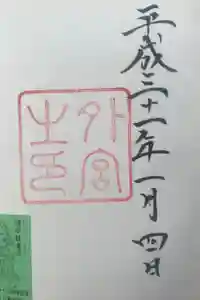 平成三十一年一月四日
外宮
之印